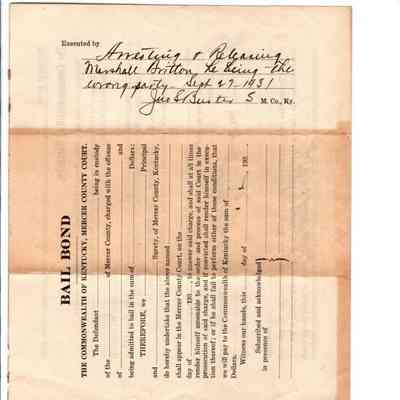 Executed by
Arresting & Releasing
Marshall Britton he being the
wrong party Sept 29-1931
Jno S. Buster S. M. Co., Ky.
BAIL BOND
THE COMMONWEALTH OF KENTUCKY, MERCER COUNTY COURT.
The Defendant being in custody
of the of Mercer County, charged with the offense
of and
being admitted to bail in the sum of Dollars:
THEREFORE, we Principal
and Surety, of Mercer County, Kentucky,
do hereby undertake that the above named
shall appear in the Mercer County Court, on the
day of 193 , to answer said charge, and shall at all times
render himself amenable to the order and process of said Court in the
prosecution of said charge, and if convicted shall render himself in execu-
tion thereof; or if he shall fail to perform either of these conditions, that
we will pay to the Commonwealth of Kentucky the sum of
Dollars.
Witness our hands, this day of 193
Subscribed and acknowledged
in presence of